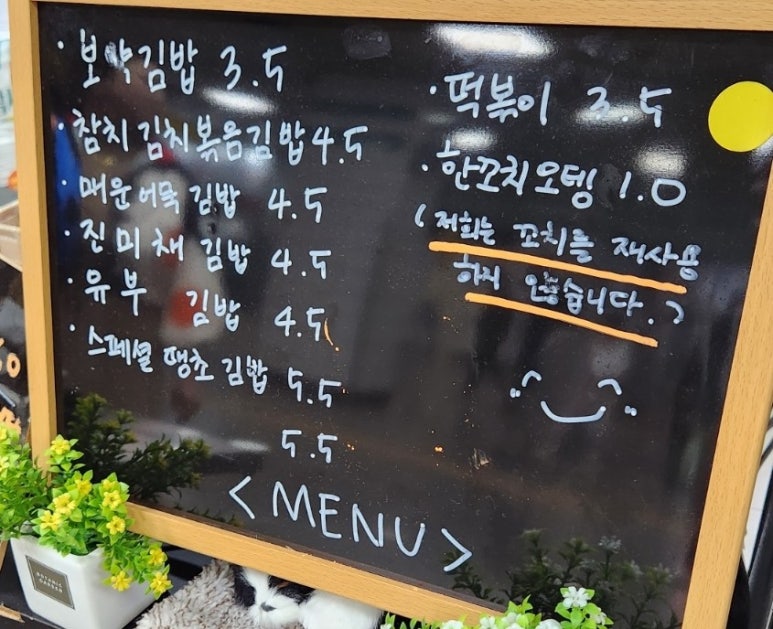 · 보약김밥 3.5
· 참치김치볶음김밥 4.5
· 매운어묵 김밥 4.5
· 진미채 김밥 4.5
· 유부 김밥 4.5
· 스페셜 땡초김밥 5.5
5.5
<MENU>
· 떡볶이 3.5
· 한꼬치오뎅 1.0
(저희는 꼬치를 재사용
하지 않습니다.)